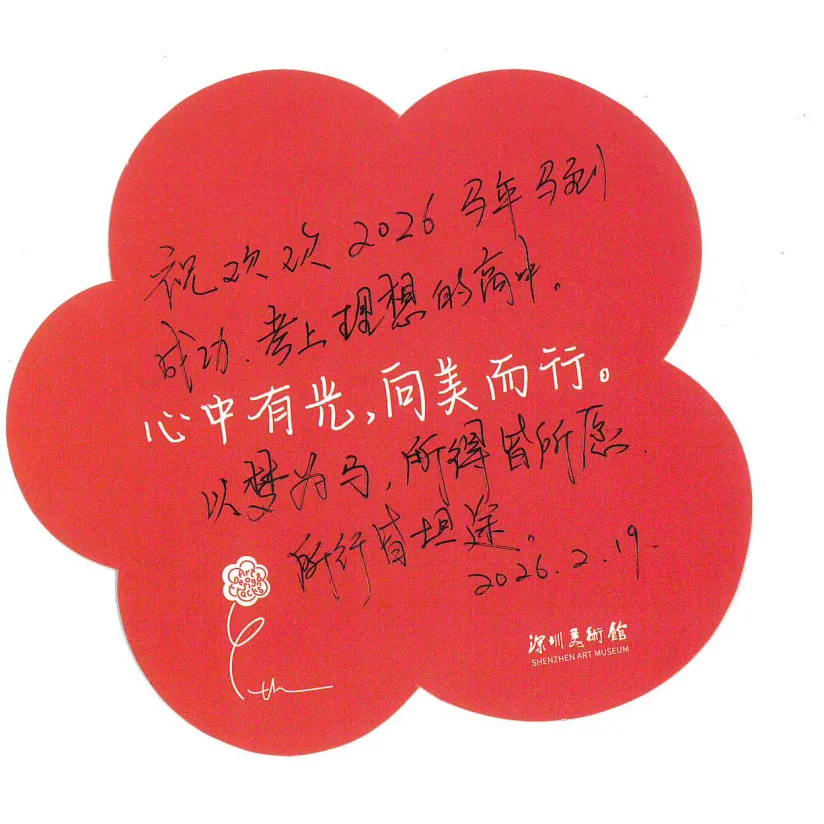 祝欢欢 2026 马年马到
成功.考上理想的高中。
心中有光,向美而行。
以梦为马,所得皆所愿.
所行皆坦途。
2026.2.19.
Art
Design
tracks
深圳美術館
SHENZHEN ART MUSEUM